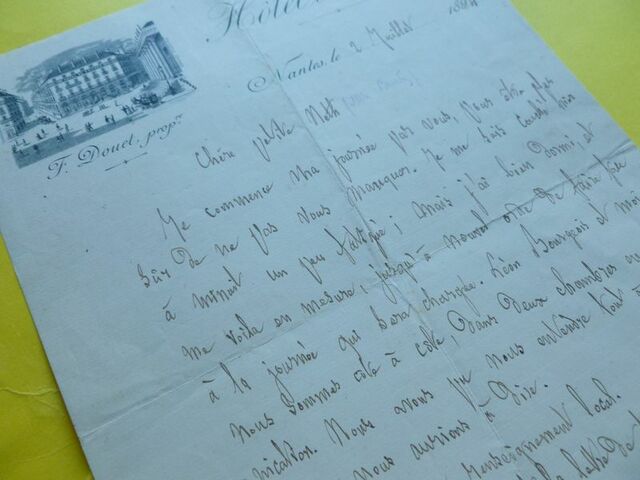 Hôtel
Nantes, le 2 Juillet 1894
F. Douet, propr.
Chère petite Neth
Je commence ma journée par vous, vous êtes plus
sûr de ne pas vous manquer. Je me suis couché hier
à minuit un peu fatigué ; mais j'ai bien dormi, et
me voilà en mesure, jusqu'à nouvel ordre de faire face
à la journée qui sera chargée. Léon Bourgeois et moi
nous sommes côte à côte, dans deux chambres en
nication. Nous avons pu nous entendre tout à
nous aurions à dire.
renseignement local.
la lettre de